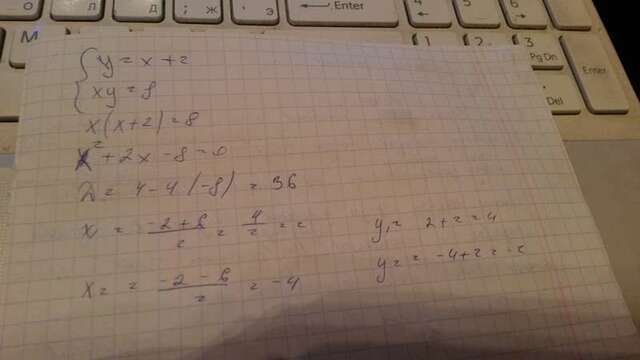 о л д ж э Enter 4 ← 5 6 →
М 1 2 3
Enter
PgDn
Del
y = x + 2
xy = 8
x(x+2) = 8
x² + 2x - 8 = 0
D = 4 - 4(-8) = 36
x = (-2+6)/2 = 4/2 = 2 y₁ = 2+2 = 4
x₂ = (-2-6)/2 = -4 y₂ = -4+2 = -2